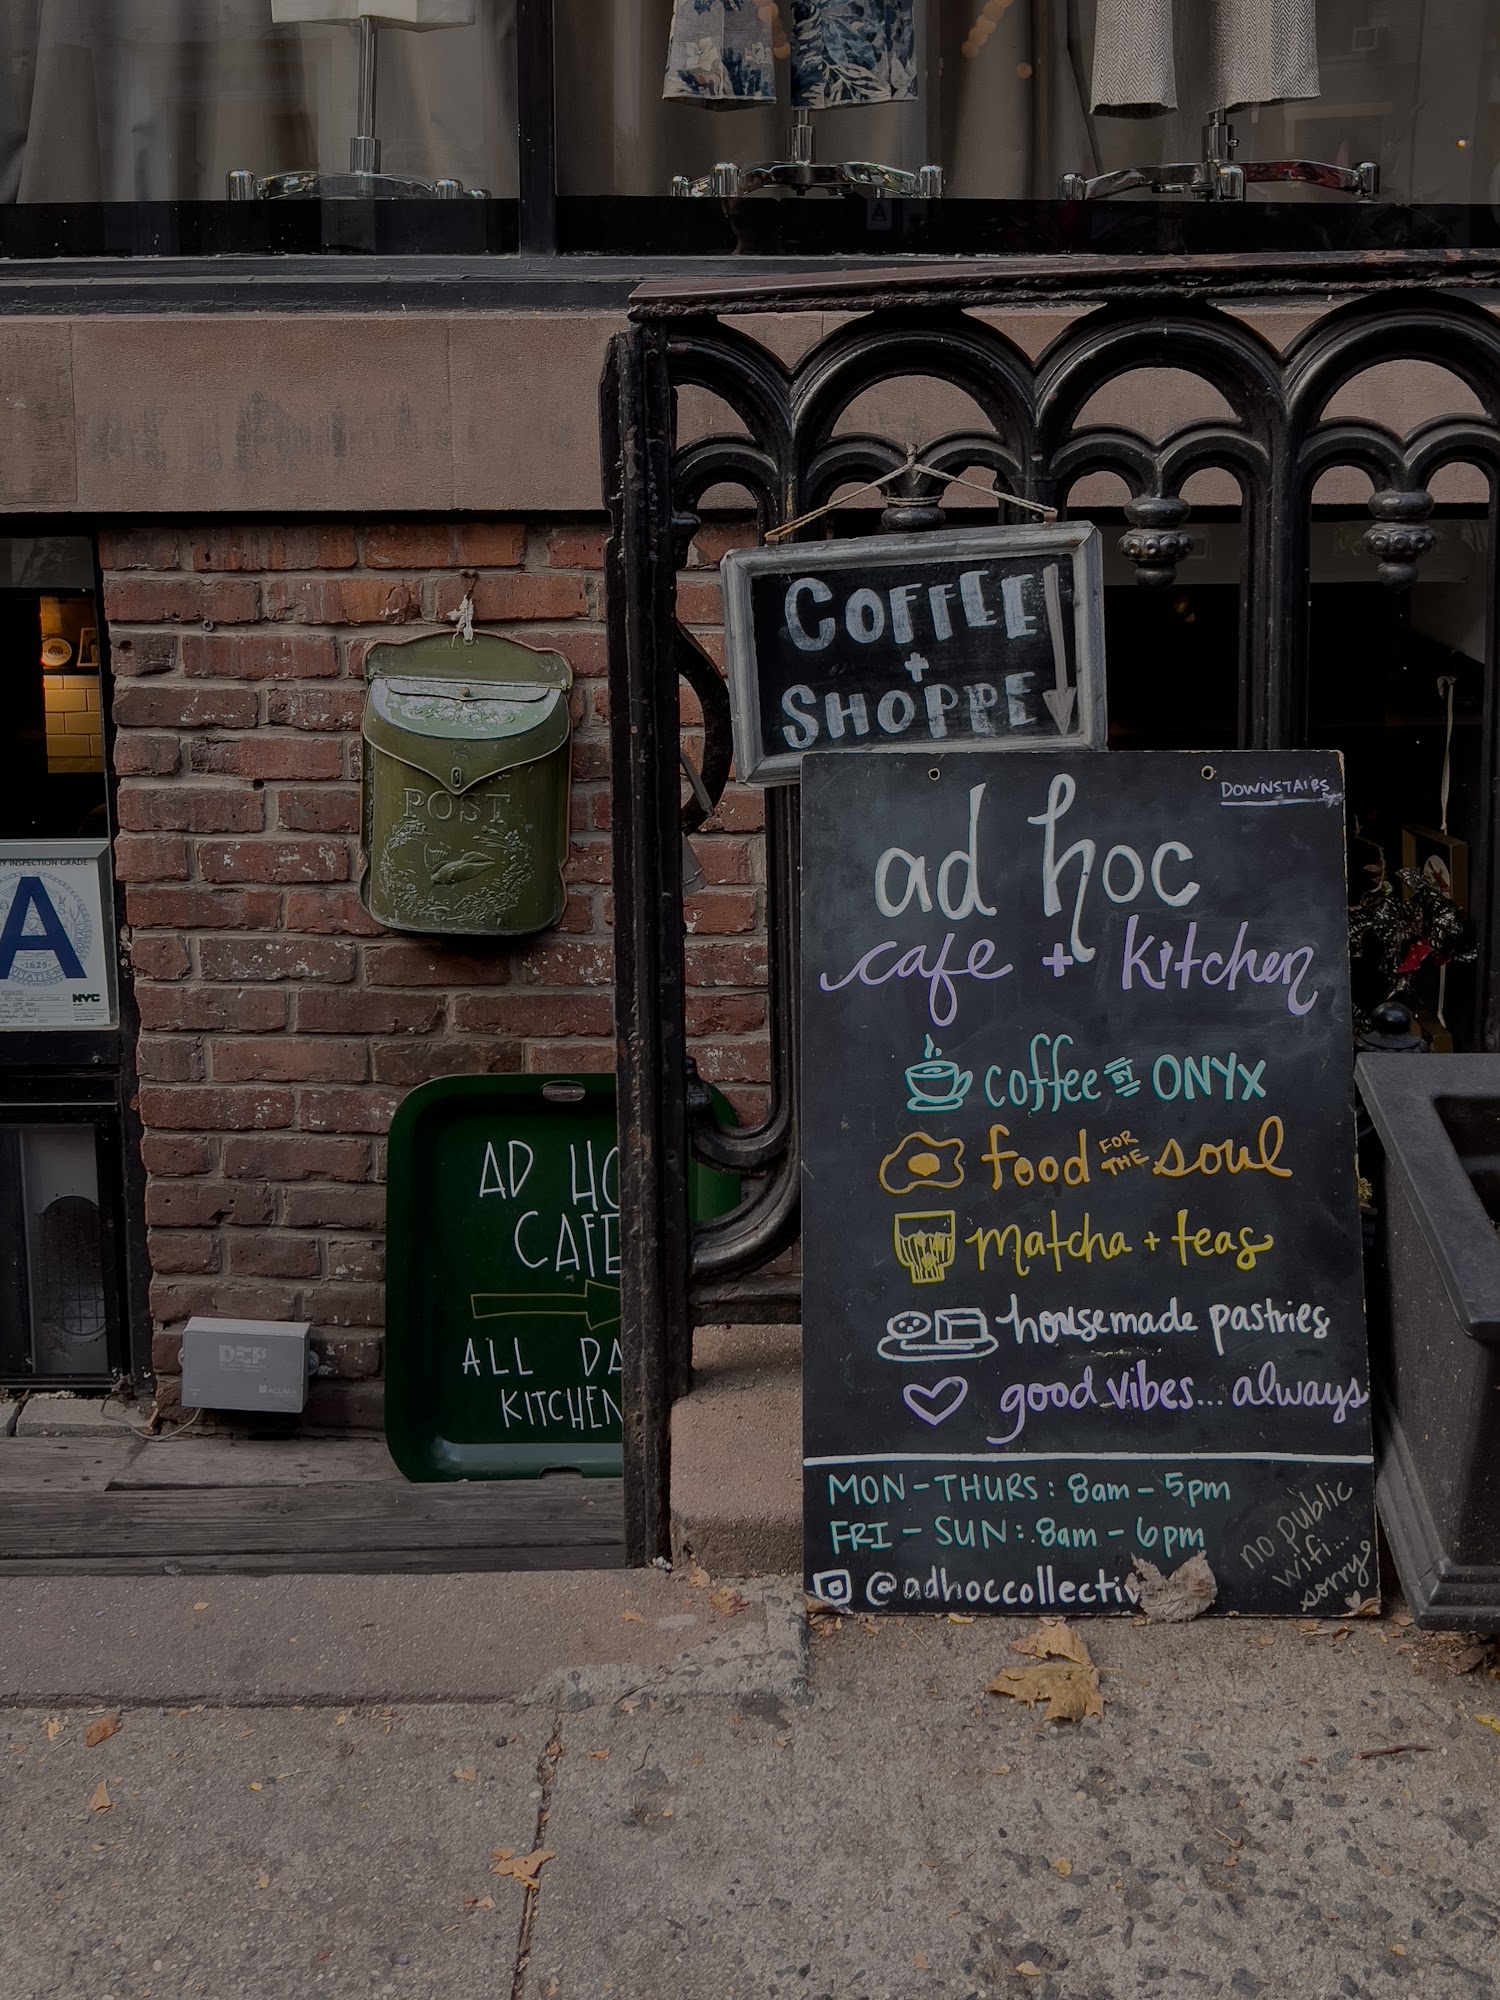 COFFEE
+
SHOPPE
DOWNSTAIRS
ad hoc
cafe + kitchen
coffee BY ONYX
food FOR THE soul
matcha + teas
housemade pastries
good vibes... always
MON-THURS: 8am-5pm
FRI-SUN: 8am-6pm
@adhoccollectiv
no public
wifi...
sorry
POST
Y INSPECTION GRADE
A
1625
NYC
AD HO
CAFE
ALL DA
KITCHEN
DEP